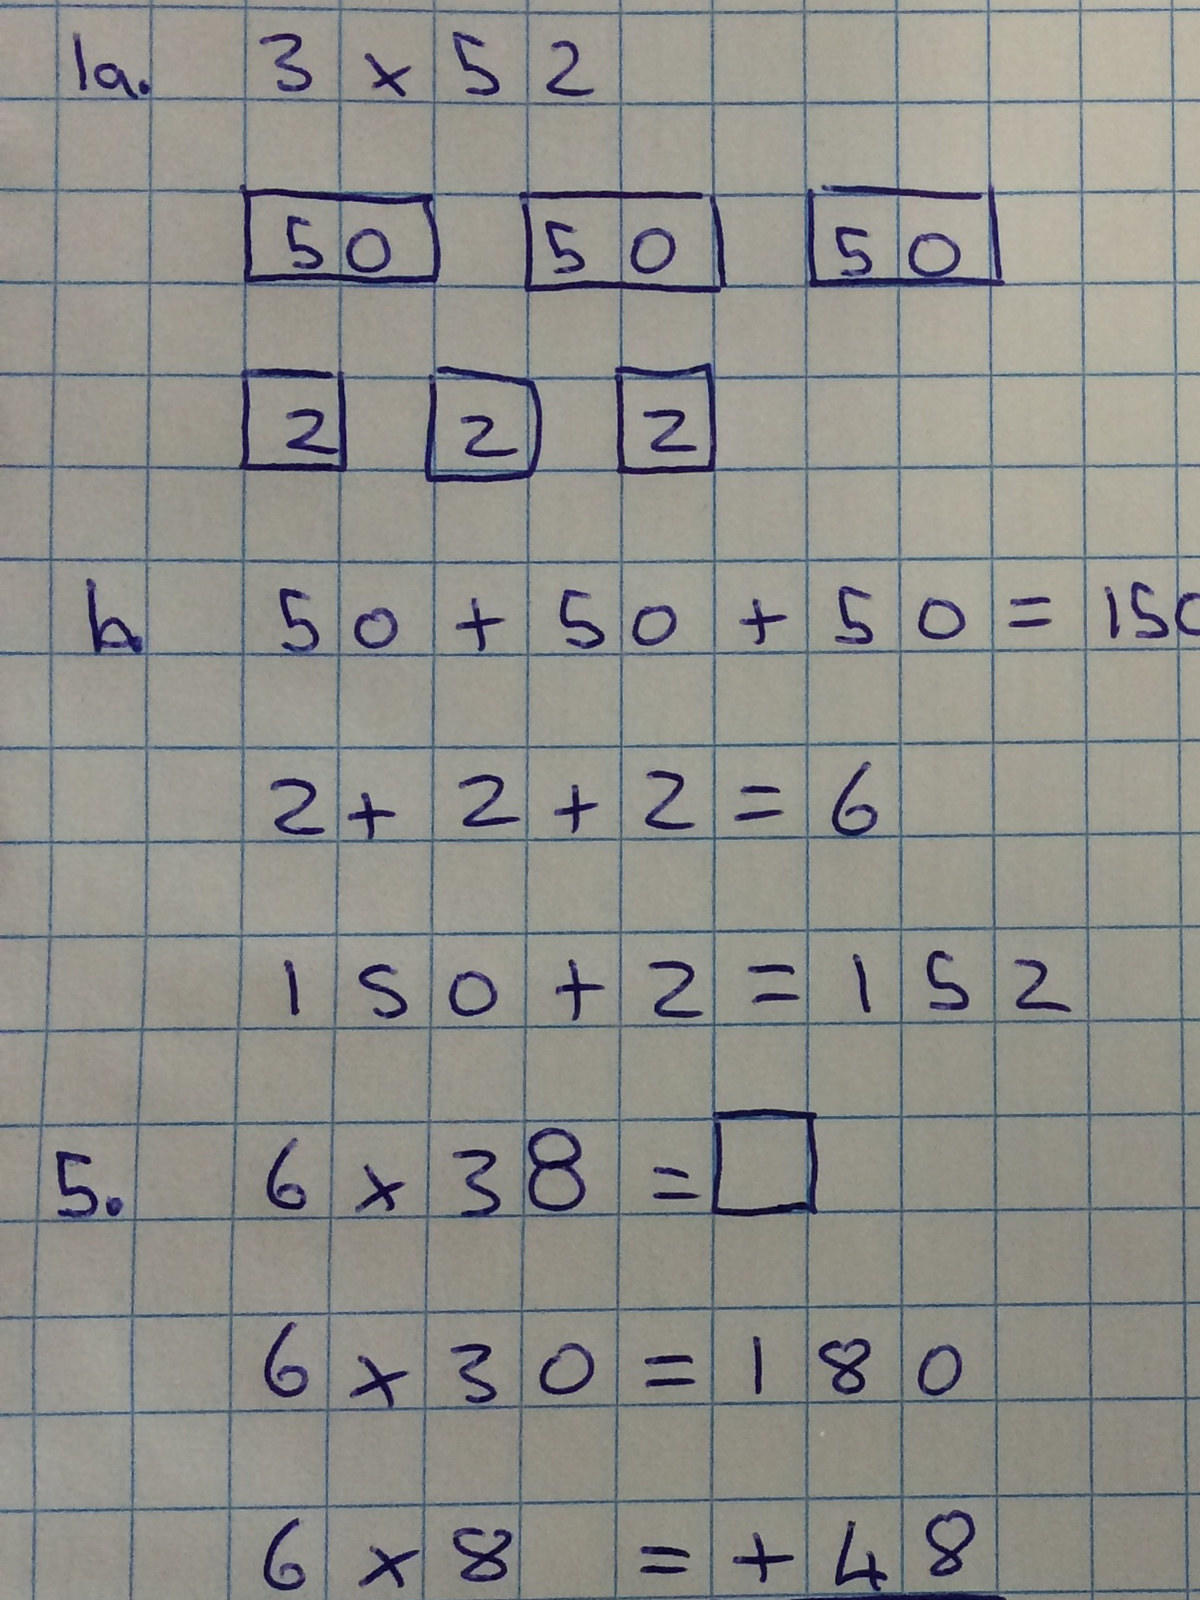 1a. 3 x 52
50 50 50
2 2 2
b 50 + 50 + 50 = 150
2 + 2 + 2 = 6
150 + 2 = 152
5. 6 x 38 = □
6 x 30 = 180
6 x 8 = + 48